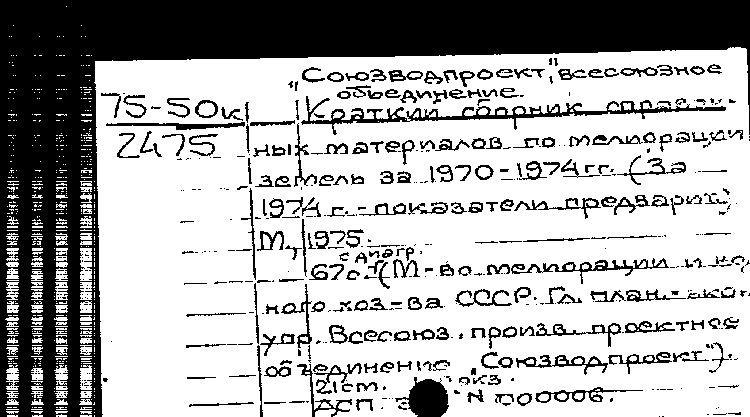 „Союзводпроект", всесоюзное
объединение.
75-50к Краткий сборник справоч-
2475 ных материалов по мелиорации
земель за 1970-1974 гг. (За
1974 г. - показатели предварит.)
М., 1975.
с диагр.
67с. (М-во мелиорации и
ного хоз-ва СССР. Гл. план.-экон.
упр. Всесоюз. произв. проектное
объединение „Союзводпроект").
21см. экз.
ДСП. N 000006.